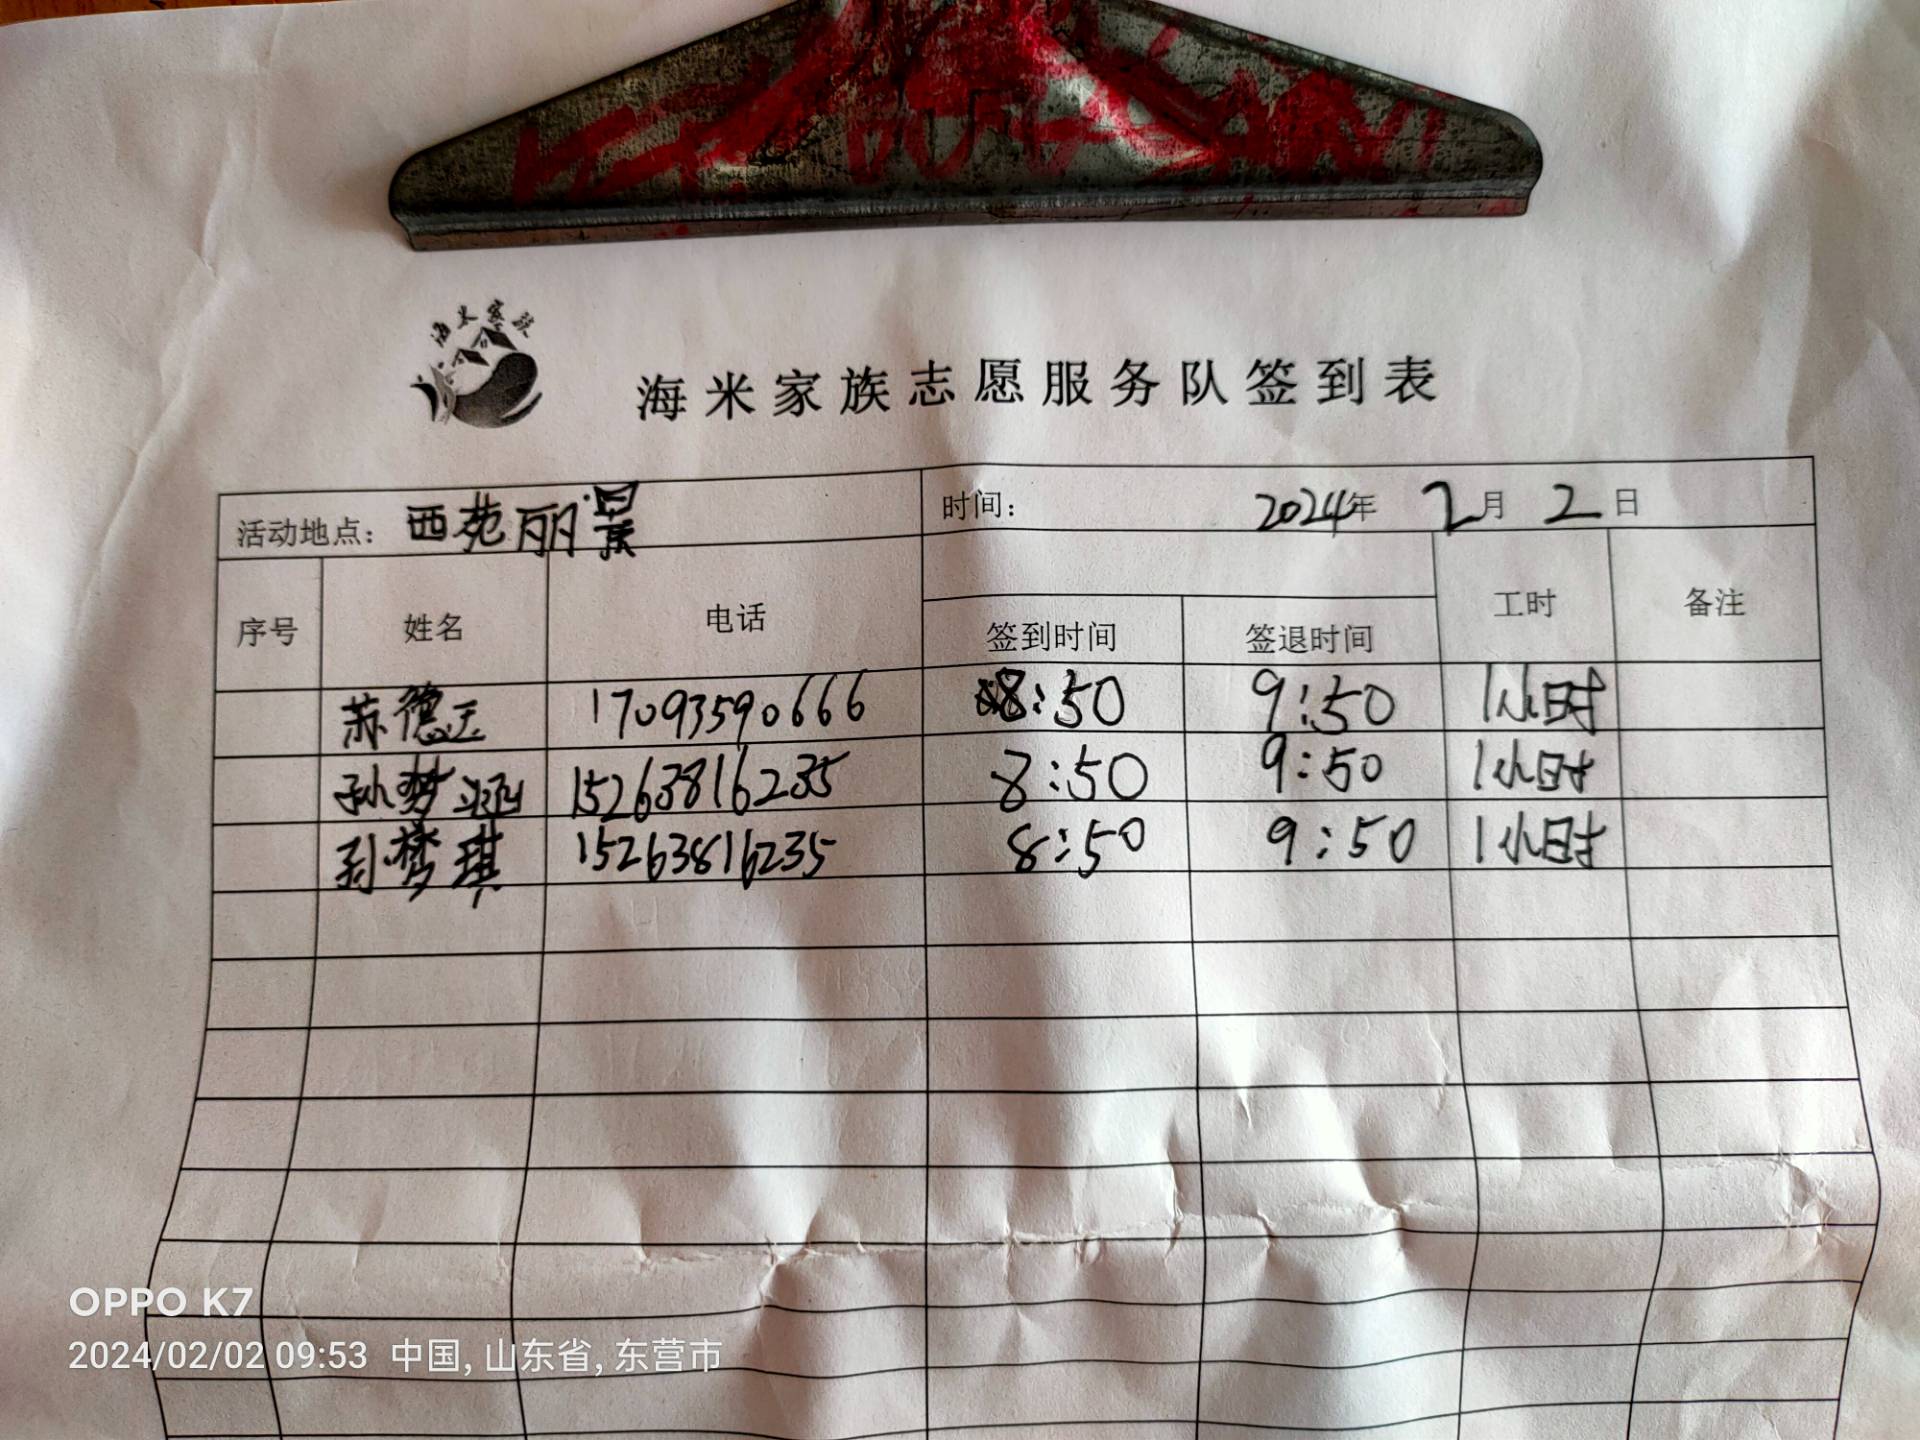 海米家族
海米家族志愿服务队签到表
活动地点：西苑丽景 时间： 2024年 2月 2日
序号 姓名 电话 签到时间 签退时间 工时 备注
苏德玉 17093590666 8:50 9:50 1小时
孙梦涵 15263816235 8:50 9:50 1小时
孙梦琪 15263816235 8:50 9:50 1小时
OPPO K7
2024/02/02 09:53 中国, 山东省, 东营市